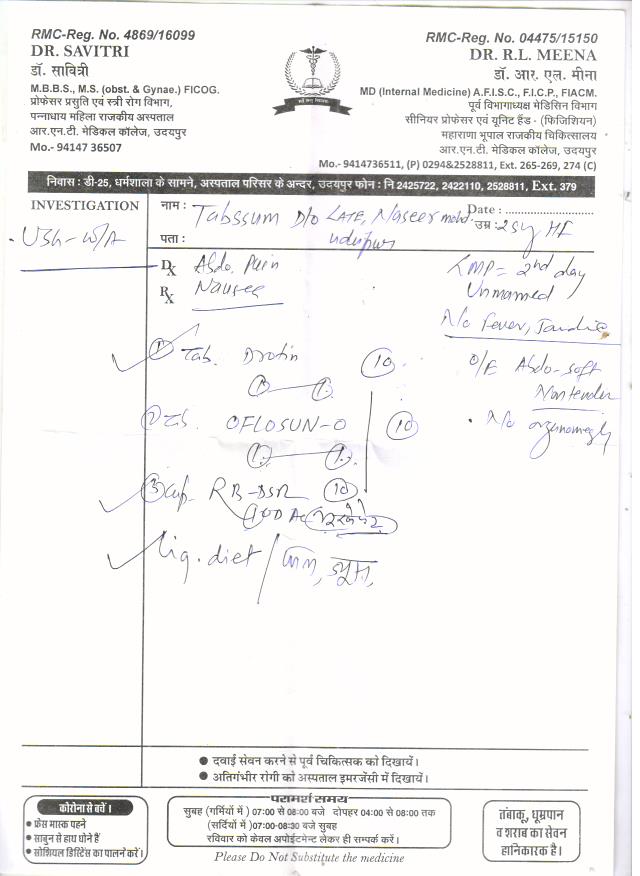 RMC-Reg. No. 4869/16099
DR. SAVITRI
डॉ. सावित्री
M.B.B.S., M.S. (obst. & Gynae.) FICOG.
प्रोफेसर प्रसुति एवं स्त्री रोग विभाग,
पन्नाधाय महिला राजकीय अस्पताल
आर.एन.टी. मेडिकल कॉलेज, उदयपुर
Mo.- 94147 36507
RMC-Reg. No. 04475/15150
DR. R.L. MEENA
डॉ. आर. एल. मीना
MD (Internal Medicine) A.F.I.S.C., F.I.C.P., FIACM.
पूर्व विभागाध्यक्ष मेडिसिन विभाग
सीनियर प्रोफेसर एवं यूनिट हैंड - (फिजिशियन)
महाराणा भूपाल राजकीय चिकित्सालय
आर.एन.टी. मेडिकल कॉलेज, उदयपुर
Mo.- 9414736511, (P) 0294&2528811, Ext. 265-269, 274 (C)
निवास : डी-25, धर्मशाला के सामने, अस्पताल परिसर के अन्दर, उदयपुर फोन : नि 2425722, 2422110, 2528811, Ext. 379
INVESTIGATION
नाम : Tabssum D/o LATE, Naseer mohd. Date :
उम्र : 25y
पता : udaipur
Dx Abdo. Pain
Rx Nausea
LMP = 2nd day
Unmarried
N/o Fever,
① Tab. Drotin ⑩
① ①
O/E Abdo-soft
Nontender
② Tab. OFLOSUN-O ⑩
① ①
N/o organomegaly
③ Cap. RB-DSR ⑩
Liq. diet /
दवाई सेवन करने से पूर्व चिकित्सक को दिखायें।
अतिगंभीर रोगी को अस्पताल इमरजेंसी में दिखायें।
कोरोना से बचें।
फ्रेस मास्क पहने
साबुन से हाथ धोने हैं
सोशियल डिस्टिंस का पालन करें।
परामर्श समय
सुबह (गर्मियों में ) 07:00 से 08:00 बजे दोपहर 04:00 से 08:00 तक
(सर्दियों में )07:00-08:30 बजे सुबह
रविवार को केवल अपोईंटमेन्ट लेकर ही सम्पर्क करें।
Please Do Not Substitute the medicine
तंबाकू, धूम्रपान
व शराब का सेवन
हानिकारक है।